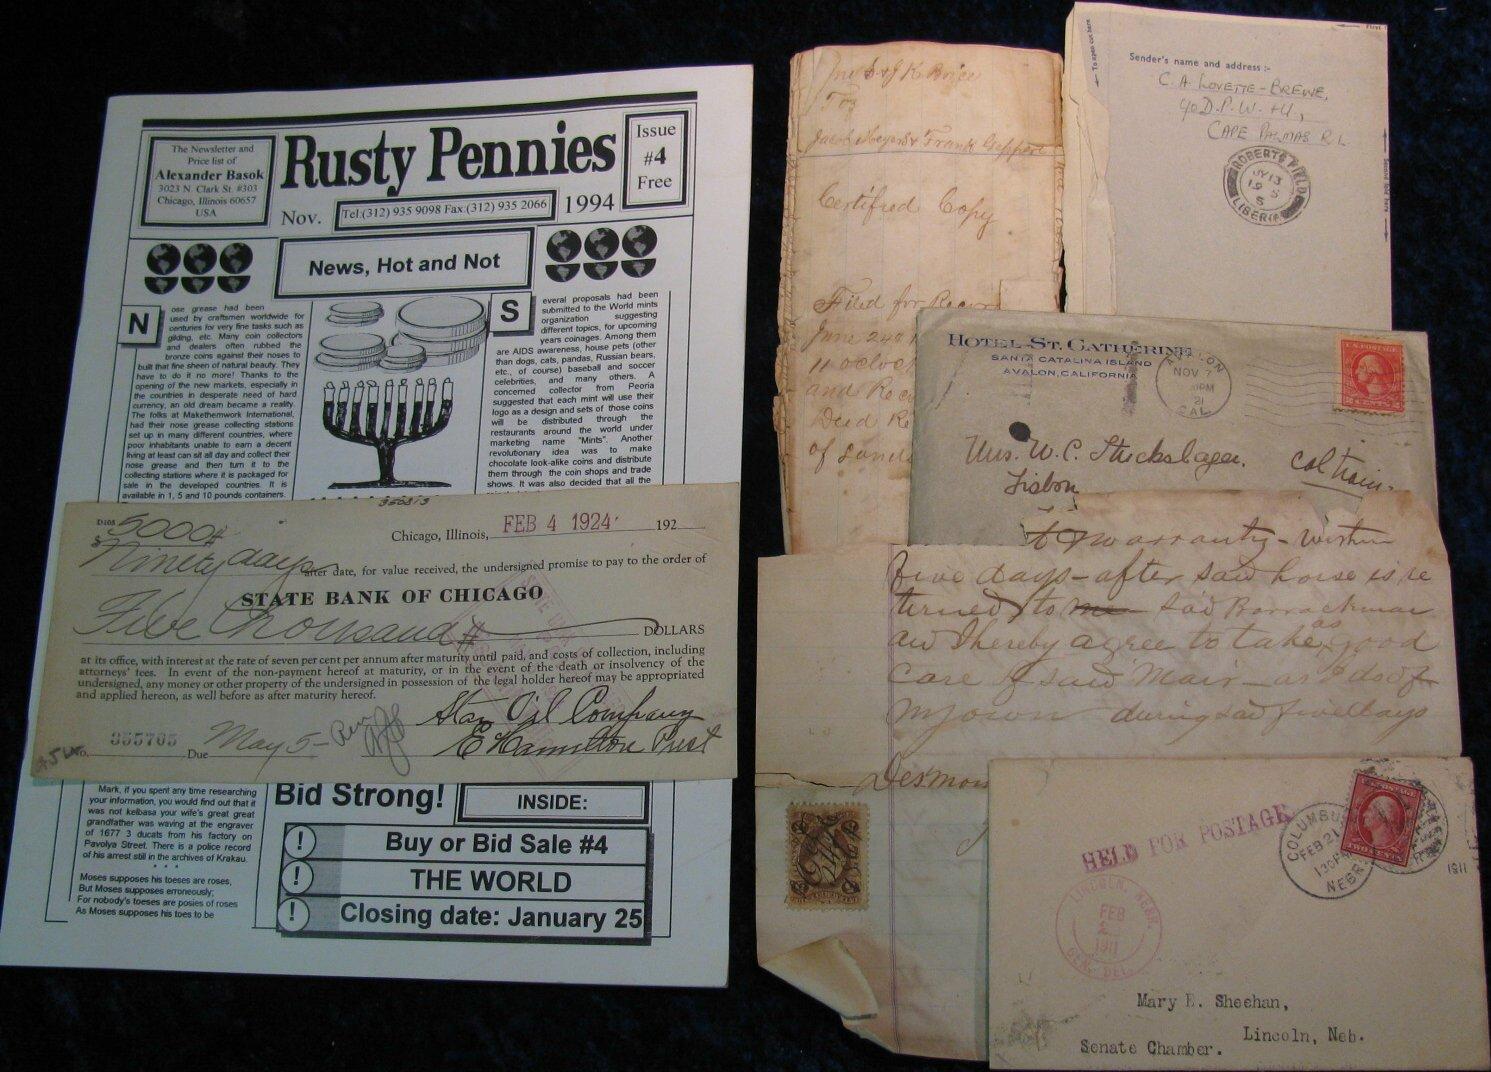 The Newsletter and
Price list of
Alexander Basok
3023 N. Clark St. #303
Chicago, Illinois 60657
USA
Rusty Pennies
Issue
#4
Free
Nov.
Tel:(312) 935 9098 Fax:(312) 935 2066
1994
News, Hot and Not
Nose grease had been
used by craftsmen worldwide for
centuries for very fine tasks such as
gilding, etc. Many coin collectors
and dealers often rubbed the
bronze coins against their noses to
built that fine sheen of natural beauty. They
have to do it no more! Thanks to the
opening of the new markets, especially in
the countries in desperate need of hard
currency, an old dream became a reality.
The folks at Makethemwork International,
had their nose grease collecting stations
set up in many different countries, where
poor inhabitants unable to earn a decent
living at least can sit all day and collect their
nose grease and then turn it to the
collecting stations where it is packaged for
sale in the developed countries. It is
available in 1, 5 and 10 pounds containers.
Several proposals had been
submitted to the World mints
organization suggesting
different topics, for upcoming
years coinages. Among them
are AIDS awareness, house pets (other
than dogs, cats, pandas, Russian bears,
etc., of course) baseball and soccer
celebrities, and many others. A
concerned collector from Peoria
suggested that each mint will use their
logo as a design and sets of those coins
will be distributed through the
restaurants around the world under
marketing name "Mints". Another
revolutionary idea was to make
chocolate look-alike coins and distribute
them through the coin shops and trade
shows. It was also decided that all the
350313
D108
$ 5000#
Chicago, Illinois, FEB 4 1924 192
Ninety days after date, for value received, the undersigned promise to pay to the order of
STATE BANK OF CHICAGO
Five Thousand # DOLLARS
at its office, with interest at the rate of seven per cent per annum after maturity until paid, and costs of collection, including
attorneys' fees. In event of the non-payment hereof at maturity, or in the event of the death or insolvency of the
undersigned, any money or other property of the undersigned in possession of the legal holder hereof may be appropriated
and applied hereon, as well before as after maturity hereof.
Star Oil Company
E Hamilton Prest
No. 355765 Due May 5- Ren
Mark, if you spent any time researching
your information, you would find out that it
was not kelbasa your wife's great great
grandfather was waving at the engraver
of 1677 3 ducats from his factory on
Pavolya Street. There is a police record
of his arrest still in the archives of Krakau.
* * *
Moses supposes his toeses are roses,
But Moses supposes erroneously;
For nobody's toeses are posies of roses
As Moses supposes his toes to be
Bid Strong!
INSIDE:
! Buy or Bid Sale #4
! THE WORLD
! Closing date: January 25
To
Jacob Meyers & Frank Geppert
Certified Copy
Filed for Recor
June 24th
11 oclock
and Rec
Deed Re
of Lands
To open cut here
First
Second fold here
Sender's name and address :-
C. A. LOVETTE-BREWE,
c/o D.P.W. + U,
CAPE PALMAS R.L
ROBERTS FIELD
JY 13
195
5
LIBERIA
HOTEL ST. CATHERINE
SANTA CATALINA ISLAND
AVALON, CALIFORNIA
AVALON
NOV 7
PM
21
CAL.
U.S. POSTAGE
2 CENTS 2
Mrs. W. C. Stuckslager.
Lisbon
to warranty - within
five days - after said horse is re
terned to me said Barrackman
and I hereby agree to take as good
care of said Mair - as I do of
my own during said five days
Desmoi
HELD FOR POSTAGE
COLUMBUS
FEB 21
130PM
NEBR
1911
U.S. POSTAGE
TWO CENTS
LINCOLN, NEBR.
FEB
2
1911
GEN. DEL.
Mary E. Sheehan,
Lincoln, Neb.
Senate Chamber.